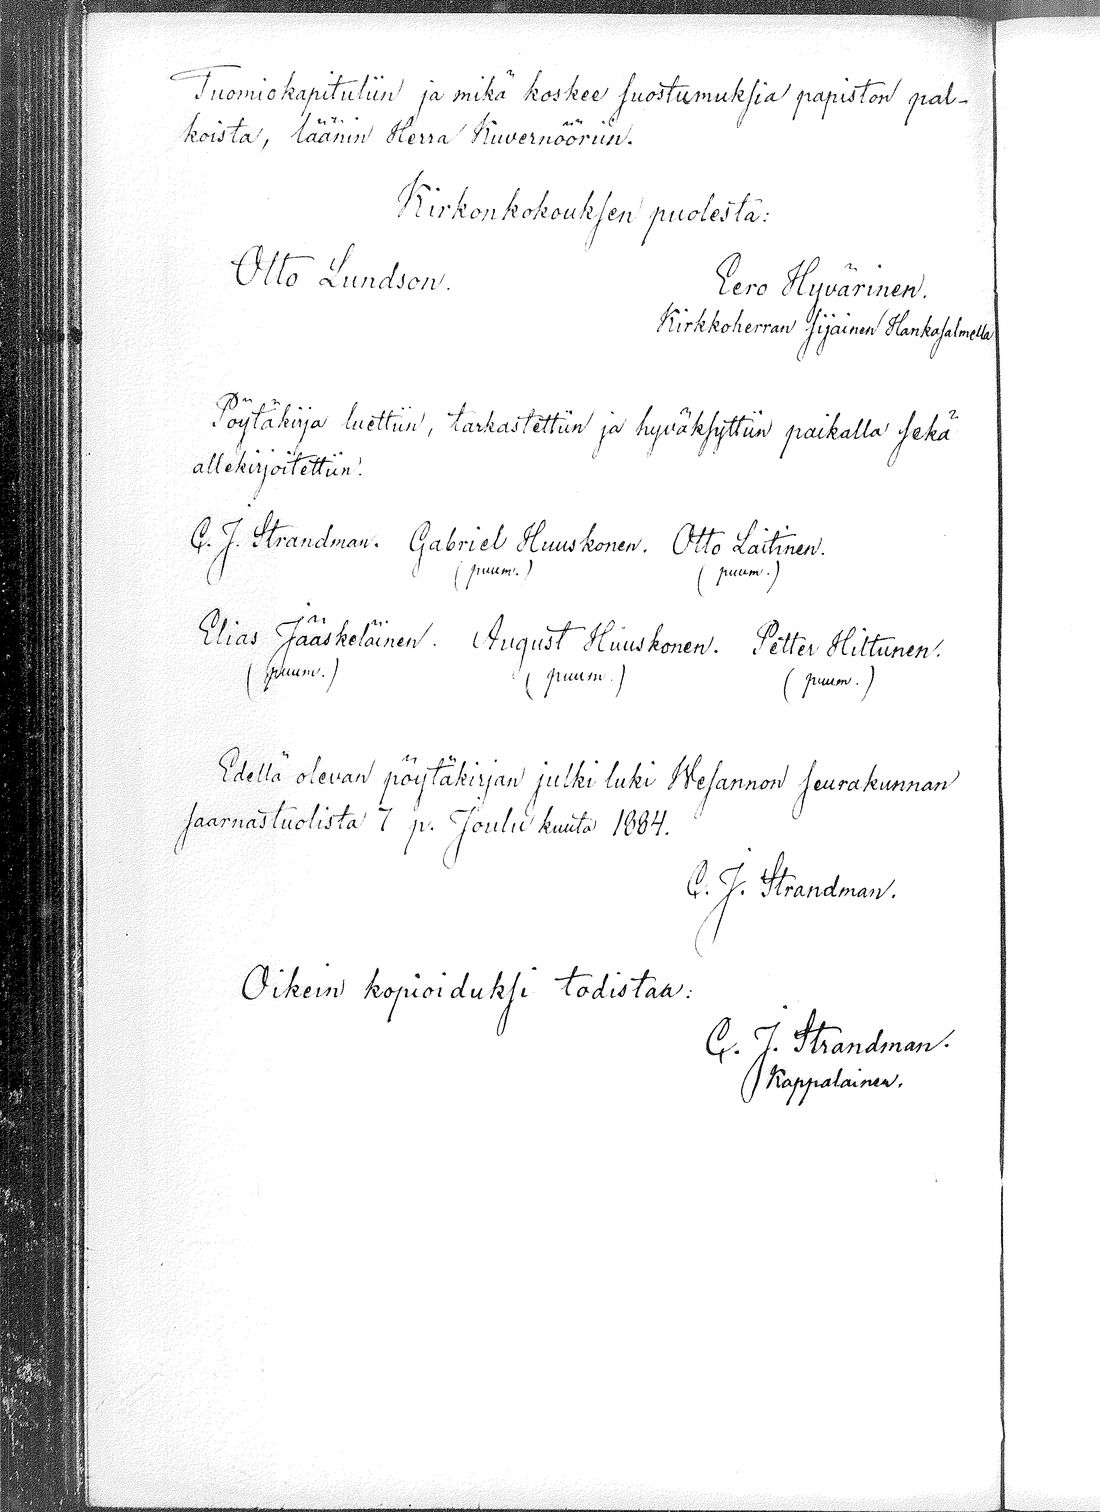 Tuomiokapituliin ja mikä koskee suostumuksia papiston pal-
koista, läänin Herra Kuvernööriin.
Kirkonkokouksen puolesta:
Otto Lundson. Eero Hyvärinen.
Kirkkoherran sijainen Hankasalmella
Pöytäkirja luettiin, tarkastettiin ja hyväksyttiin paikalla sekä
allekirjoitettiin.
C. J. Strandman. Gabriel Huuskonen. Otto Laitinen.
(puum.) (puum.)
Elias Jääskeläinen. August Huuskonen. Petter Hiltunen.
(puum.) (puum.) (puum.)
Edellä olevan pöytäkirjan julki luki Wesannon seurakunnan
saarnastuolista 7 p. Joulu kuuta 1884.
C. J. Strandman.
Oikein kopioiduksi todistaa:
C. J. Strandman.
Kappalainen.